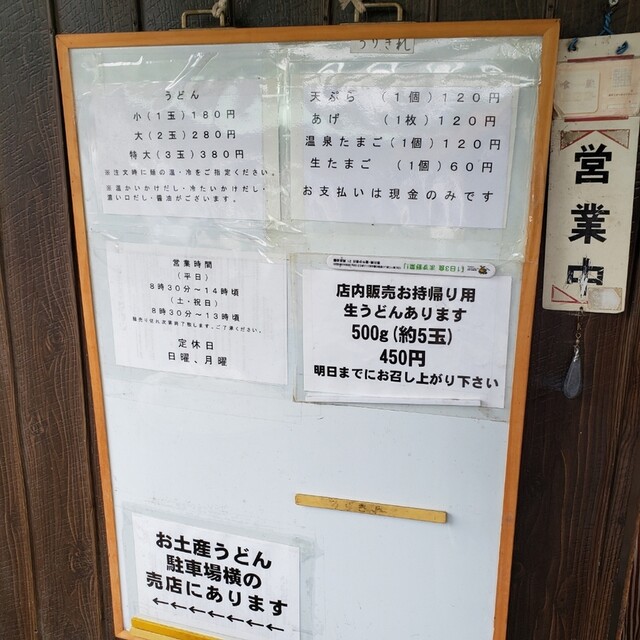 うりきれ
うどん
小(1玉)180円
大(2玉)280円
特大(3玉)380円
※注文時に麺の温・冷をご指定ください。
※温かいかけだし・冷たいかけだし・
濃い口だし・醤油がございます。
天ぷら (1個)120円
あげ (1枚)120円
温泉たまご(1個)120円
生たまご (1個)60円
お支払いは現金のみです
営業時間
(平日)
8時30分~14時頃
(土・祝日)
8時30分~13時頃
麺売り切れ次第終了致します。ご了承ください。
定休日
日曜、月曜
店内販売お持帰り用
生うどんあります
500g(約5玉)
450円
明日までにお召し上がり下さい
お土産うどん
駐車場横の
売店にあります
←←←←←←←
営業中